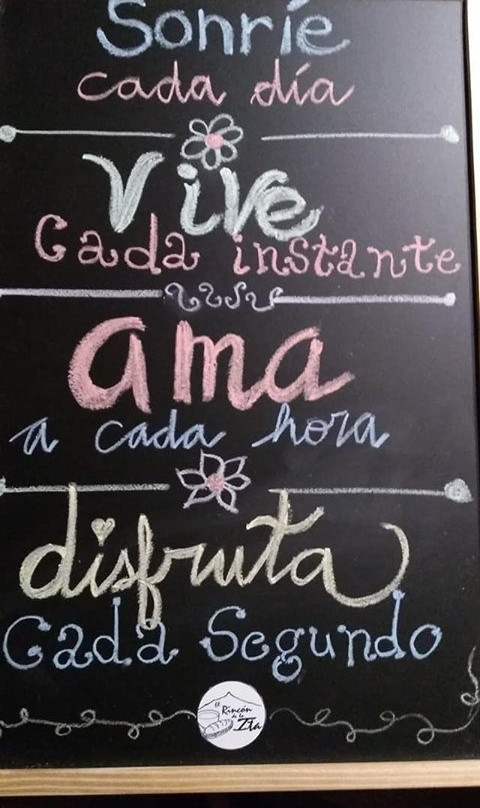 Sonríe
cada día
Vive
Cada instante
ama
a cada hora
disfruta
Cada Segundo
El
Rincón
de la
Ita